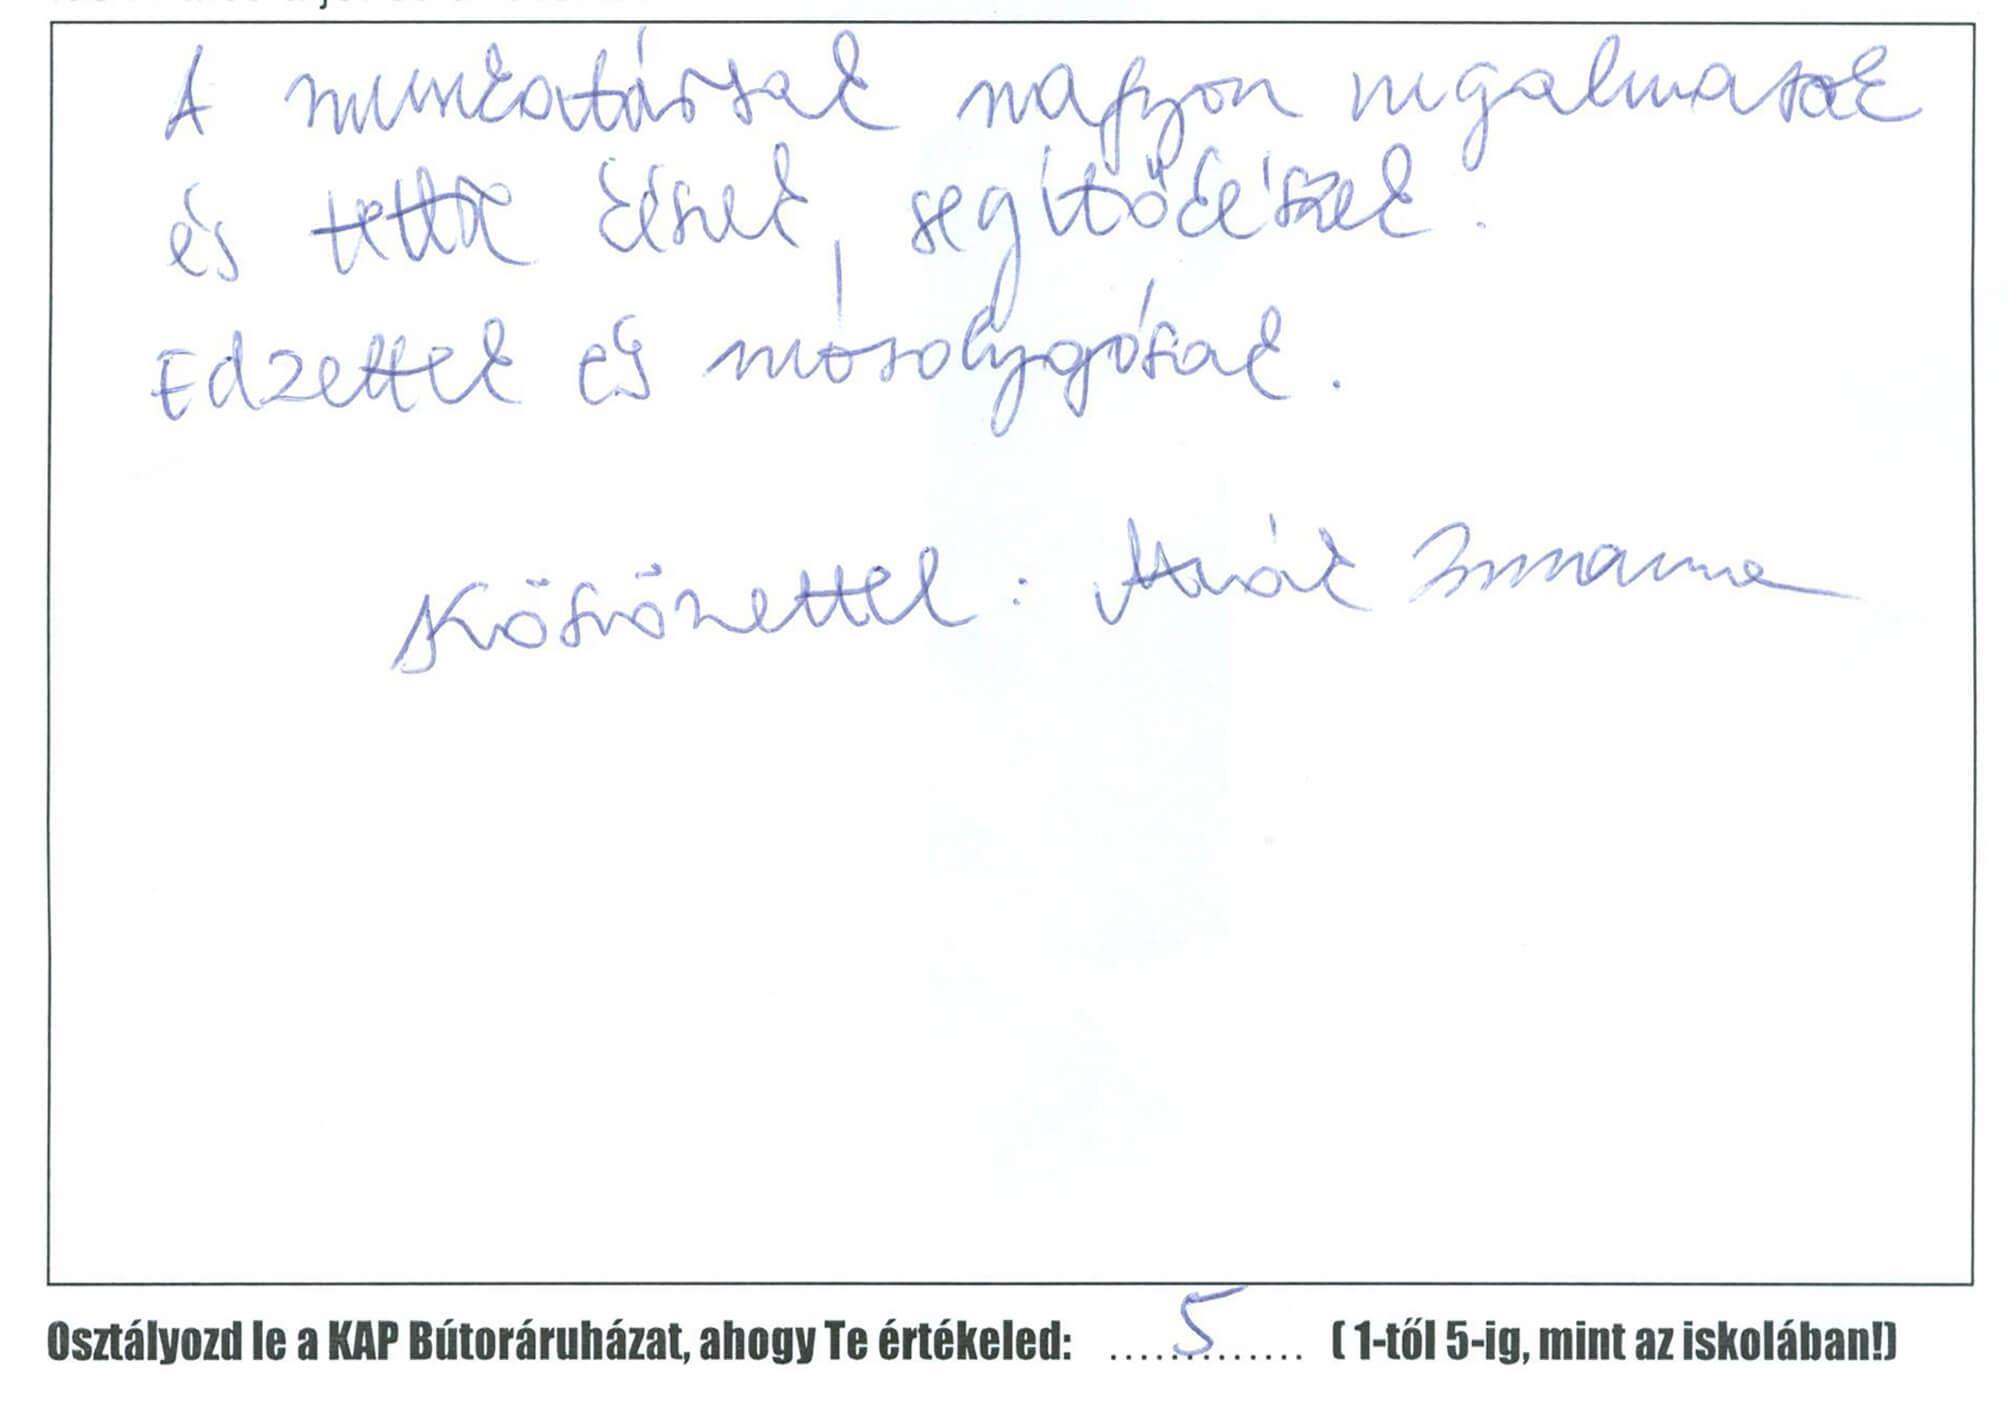 A munkatársak nagyon rugalmasak
és tettre készek, segítőkészek.
Edzettek és mosolygósak.
Köszönettel:
Osztályozd le a KAP Bútoráruházat, ahogy Te értékeled: ....5........ ( 1-től 5-ig, mint az iskolában!)